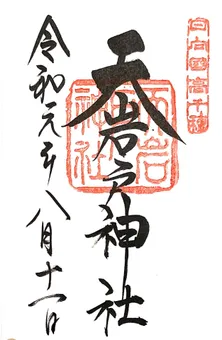 日向國高千穂
天岩戸神社
天岩戸神社
令和元年八月十一日